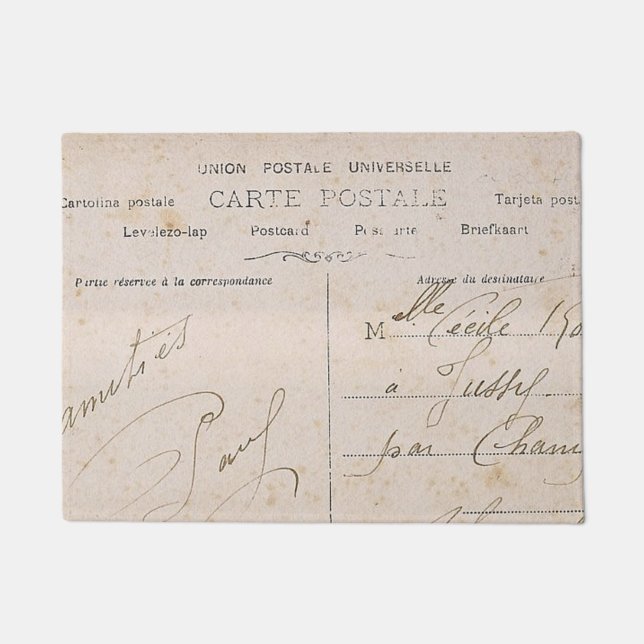 UNION POSTALE UNIVERSELLE
Cartolina postale CARTE POSTALE Tarjeta post
Levelezo-lap Postcard Pos arte Briefkaart
Partie réservée à la correspondance
amitiés
Paul
Adresse du destinataire
Melle Cécile
à Jussy
par